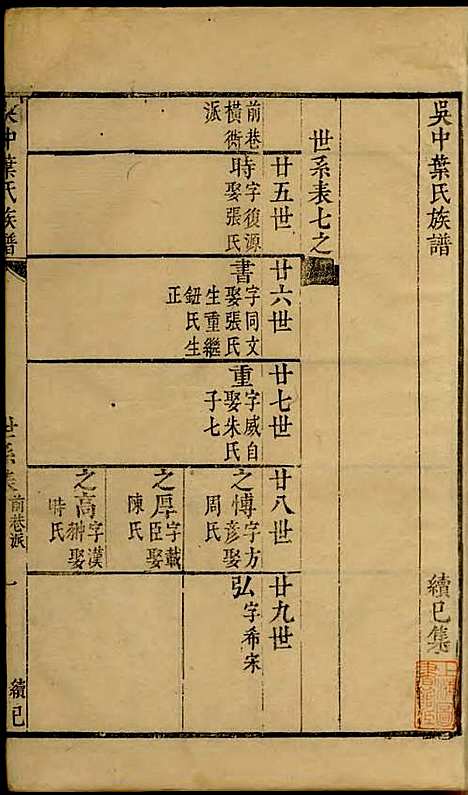 吳中葉氏族譜 續巳集
世系表七之
前巷
橫街
派
廿五世
時 字復源
娶張氏
廿六世
書 字同文
娶張氏
生重繼
鈕氏生
正
廿七世
重 字威自
娶朱氏
子七
廿八世
之愽 字方
彦娶
周氏
之厚 字載
臣娶
陳氏
之高 字漢
翀娶
時氏
廿九世
弘 字希宋
吳中葉氏族譜
世系表 前巷派 一 續巳
上海圖
書館藏